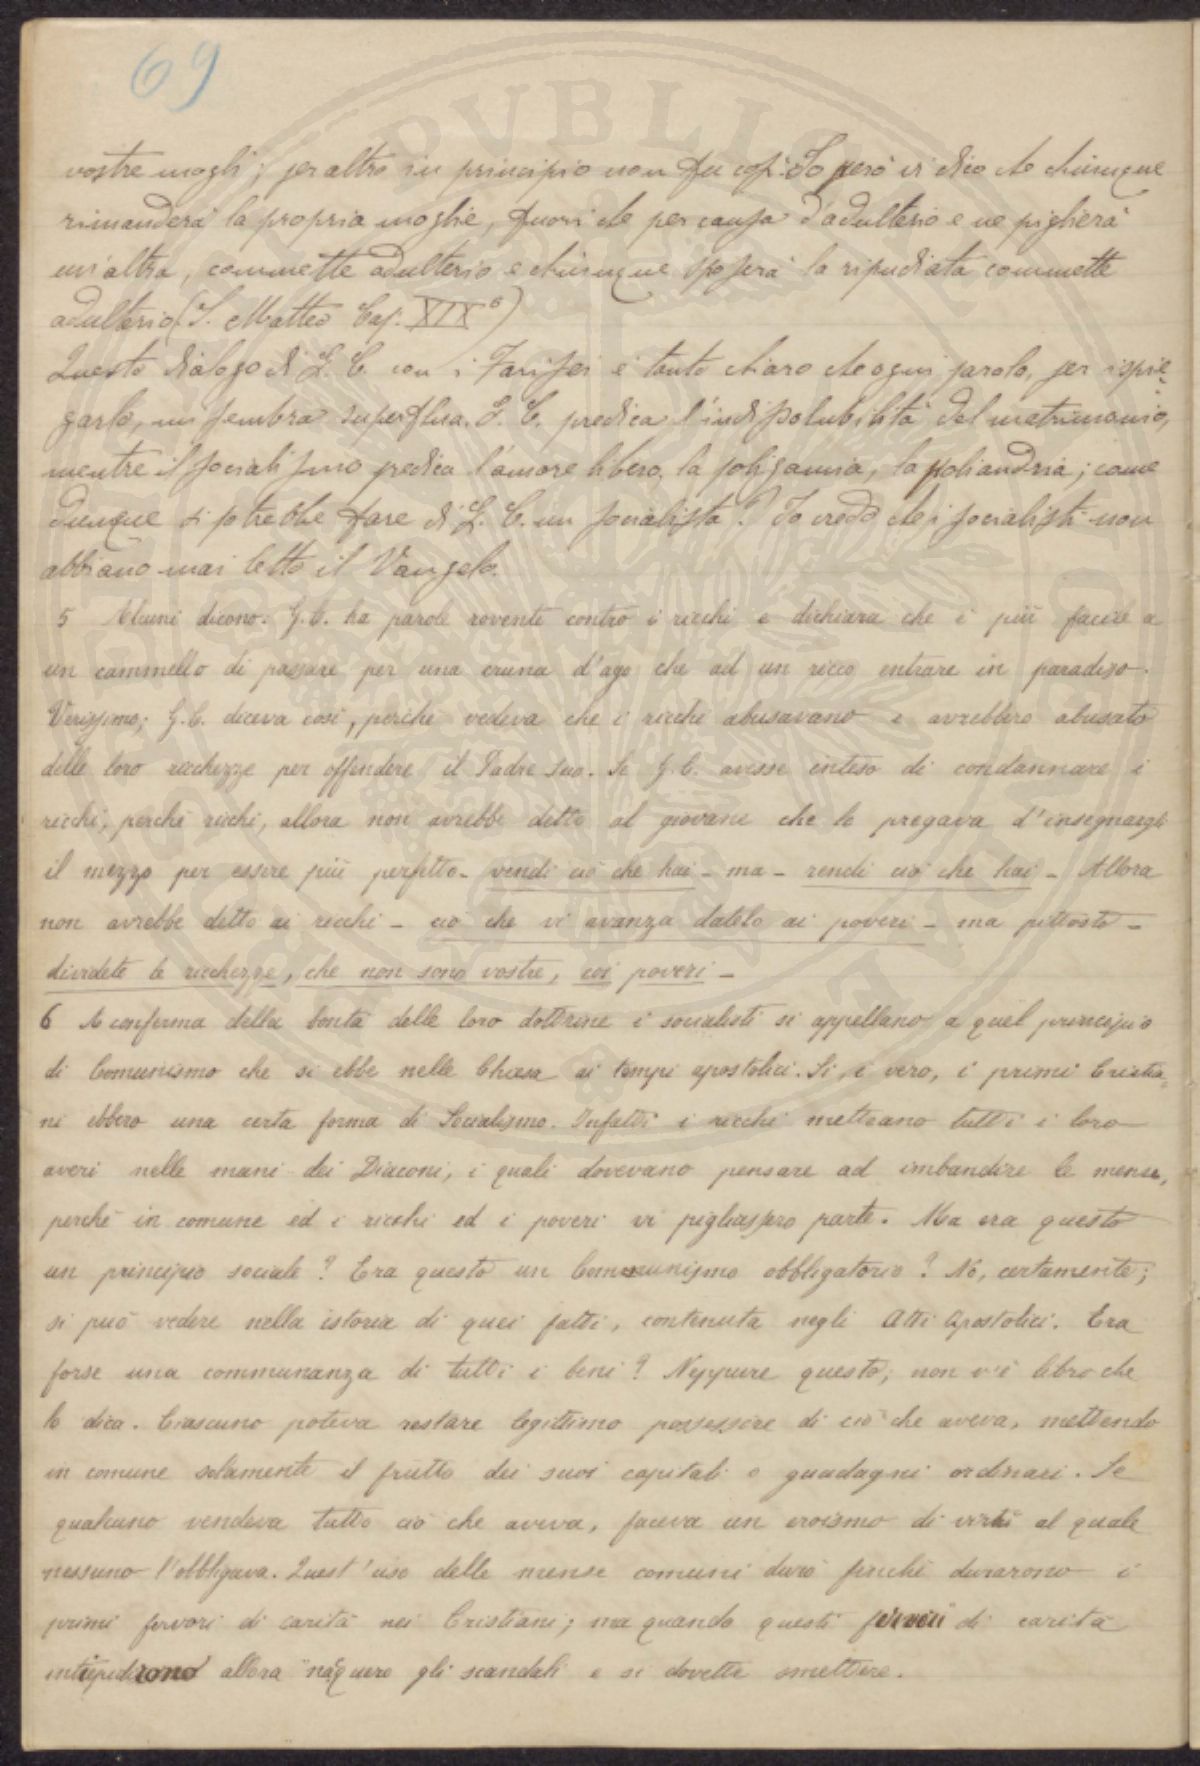 69
vostre mogli; per altro in principio non fu così. Io però vi dico che chiunque
rimanderà la propria moglie, fuori che per causa d'adulterio e ne piglierà
un'altra, commette adulterio e chiunque sposerà la ripudiata commette
adulterio (S. Matteo Cap. XIX°)
Questo dialogo di G. C. con i Farisei è tanto chiaro che ogni parola, per ispie=
garlo, mi sembra superflua. G. C. predica l'indissolubilità del matrimonio,
mentre il socialismo predica l'amore libero, la poligamia, la poliandria; come
dunque si potrebbe fare di G. C. un socialista? Io credo che i socialisti non
abbiano mai letto il Vangelo.
5 Alcuni dicono: G. C. ha parole roventi contro i ricchi e dichiara che è più facile a
un cammello di passare per una cruna d'ago che ad un ricco entrare in paradiso.
Verissimo; G. C. diceva così, perché vedeva che i ricchi abusavano e avrebbero abusato
delle loro ricchezze per offendere il Padre suo. Se G. C. avesse inteso di condannare i
ricchi, perché ricchi, allora non avrebbe detto al giovane che lo pregava d'insegnargli
il mezzo per essere più perfetto - vendi ciò che hai - ma - rendi ciò che hai - Allora
non avrebbe detto ai ricchi - ciò che vi avanza datelo ai poveri - ma piuttosto -
dividete le ricchezze, che non sono vostre, coi poveri -
6 A conferma della bontà delle loro dottrine i socialisti si appellano a quel principio
di Comunismo che si ebbe nella Chiesa ai tempi apostolici. Sì, è vero, i primi Cristia=
ni ebbero una certa forma di Socialismo. Infatti i ricchi metteano tutti i loro
averi nelle mani dei Diaconi, i quali dovevano pensare ad imbandire le mense,
perché in comune ed i ricchi ed i poveri vi pigliassero parte. Ma era questo
un principio sociale? Era questo un Communismo obbligatorio? No, certamente;
si può vedere nella istoria di quei fatti, contenuta negli Atti Apostolici. Era
forse una communanza di tutti i beni? Neppure questo; non v'è libro che
lo dica. Ciascuno poteva restare legittimo possessore di ciò che aveva, mettendo
in comune solamente il frutto dei suoi capitali o guadagni ordinari. Se
qualcuno vendeva tutto ciò che aveva, faceva un eroismo di virtù al quale
nessuno l'obbligava. Quest'uso delle mense comuni durò finché durarono i
primi fervori di carità nei Cristiani; ma quando questi fervori di carità
intiepidirono allora nacquero gli scandali e si dovette smettere.
PVBLIC